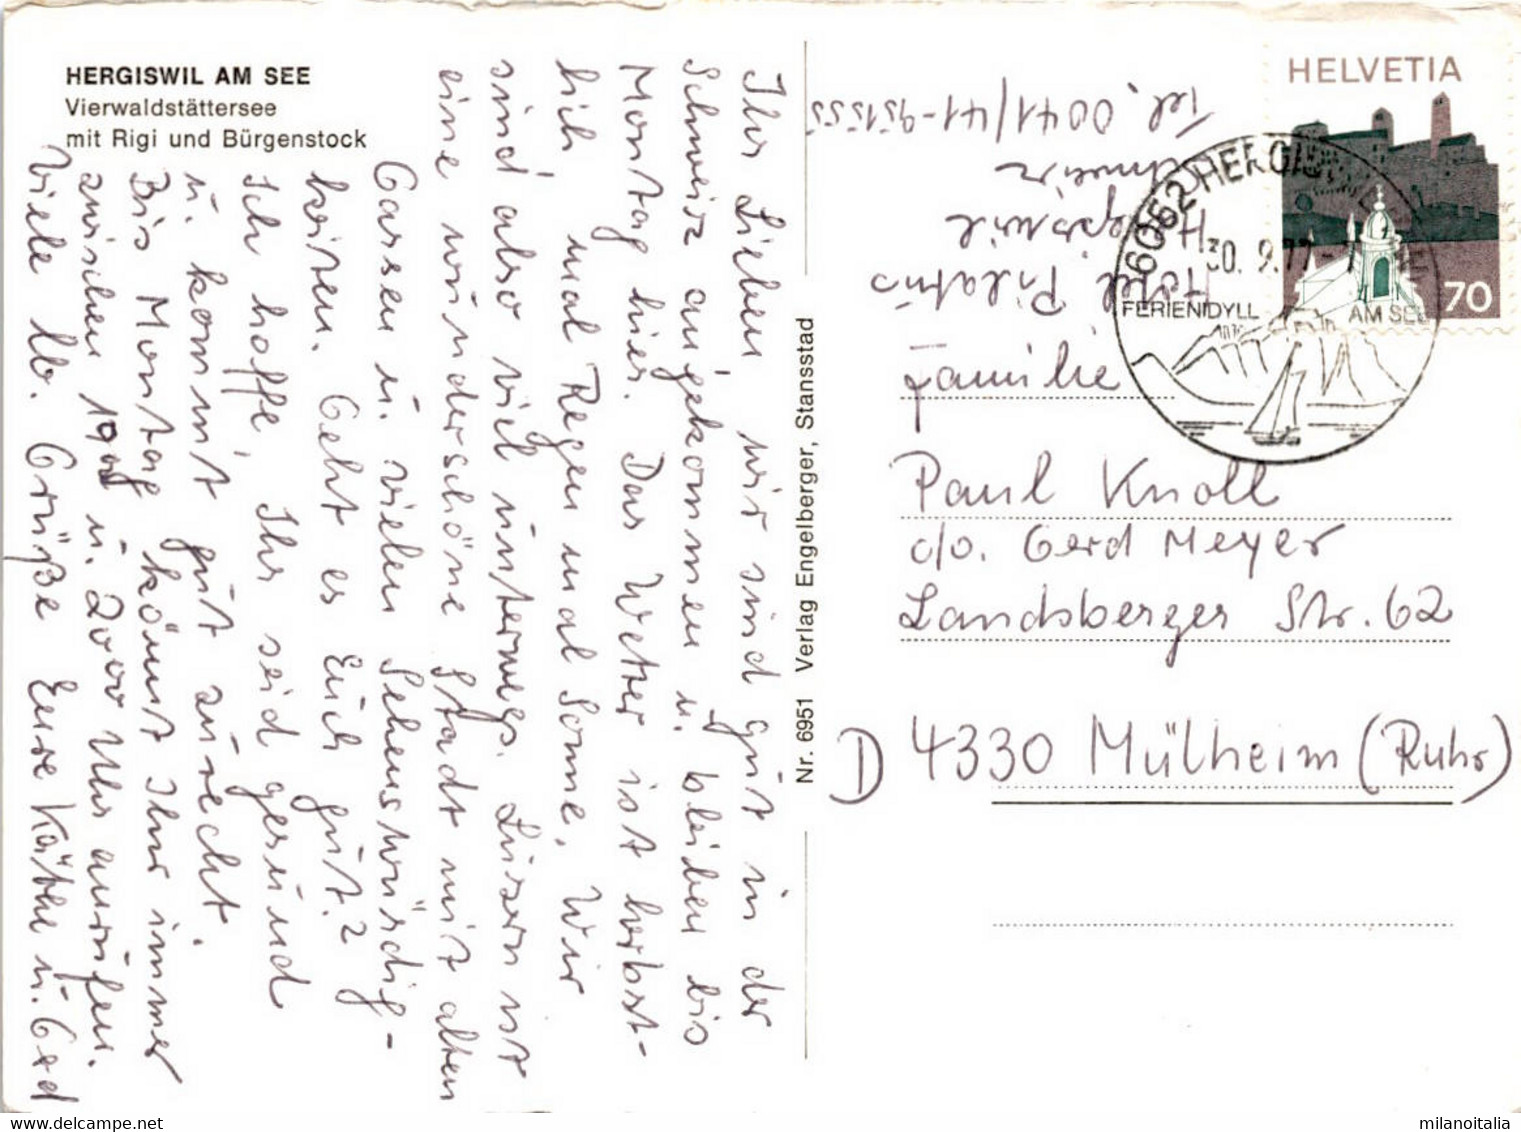 HERGISWIL AM SEE
Vierwaldstättersee
mit Rigi und Bürgenstock
Ihr Lieben, wir sind gut in der
Schweiz angekommen u. bleiben bis
Montag hier. Das Wetter ist herbst-
lich mal Regen mal Sonne. Wir
sind also viel unterwegs. Luzern ist
eine wunderschöne Stadt mit alten
Gassen u. vielen Sehenswürdig-
keiten. Geht es Euch gut?
Ich hoffe, Ihr seid gesund
u. kommt gut zurecht.
Bis Montag könnt Ihr immer
zwischen 19 u. 20 Uhr anrufen.
Viele lb. Grüße Eure Käthe u. Gerd
Nr. 6951 Verlag Engelberger, Stansstad
Hotel Pilatus
Hergiswil
Schweiz
Tel. 0041/41-951555
HELVETIA
70
6052 HERGISWIL
30. 9. 77 - 7
FERIENIDYLL AM SEE
Familie
Paul Knoll
c/o. Gerd Meyer
Landsberger Str. 62
D 4330 Mülheim (Ruhr)
milanoitalia